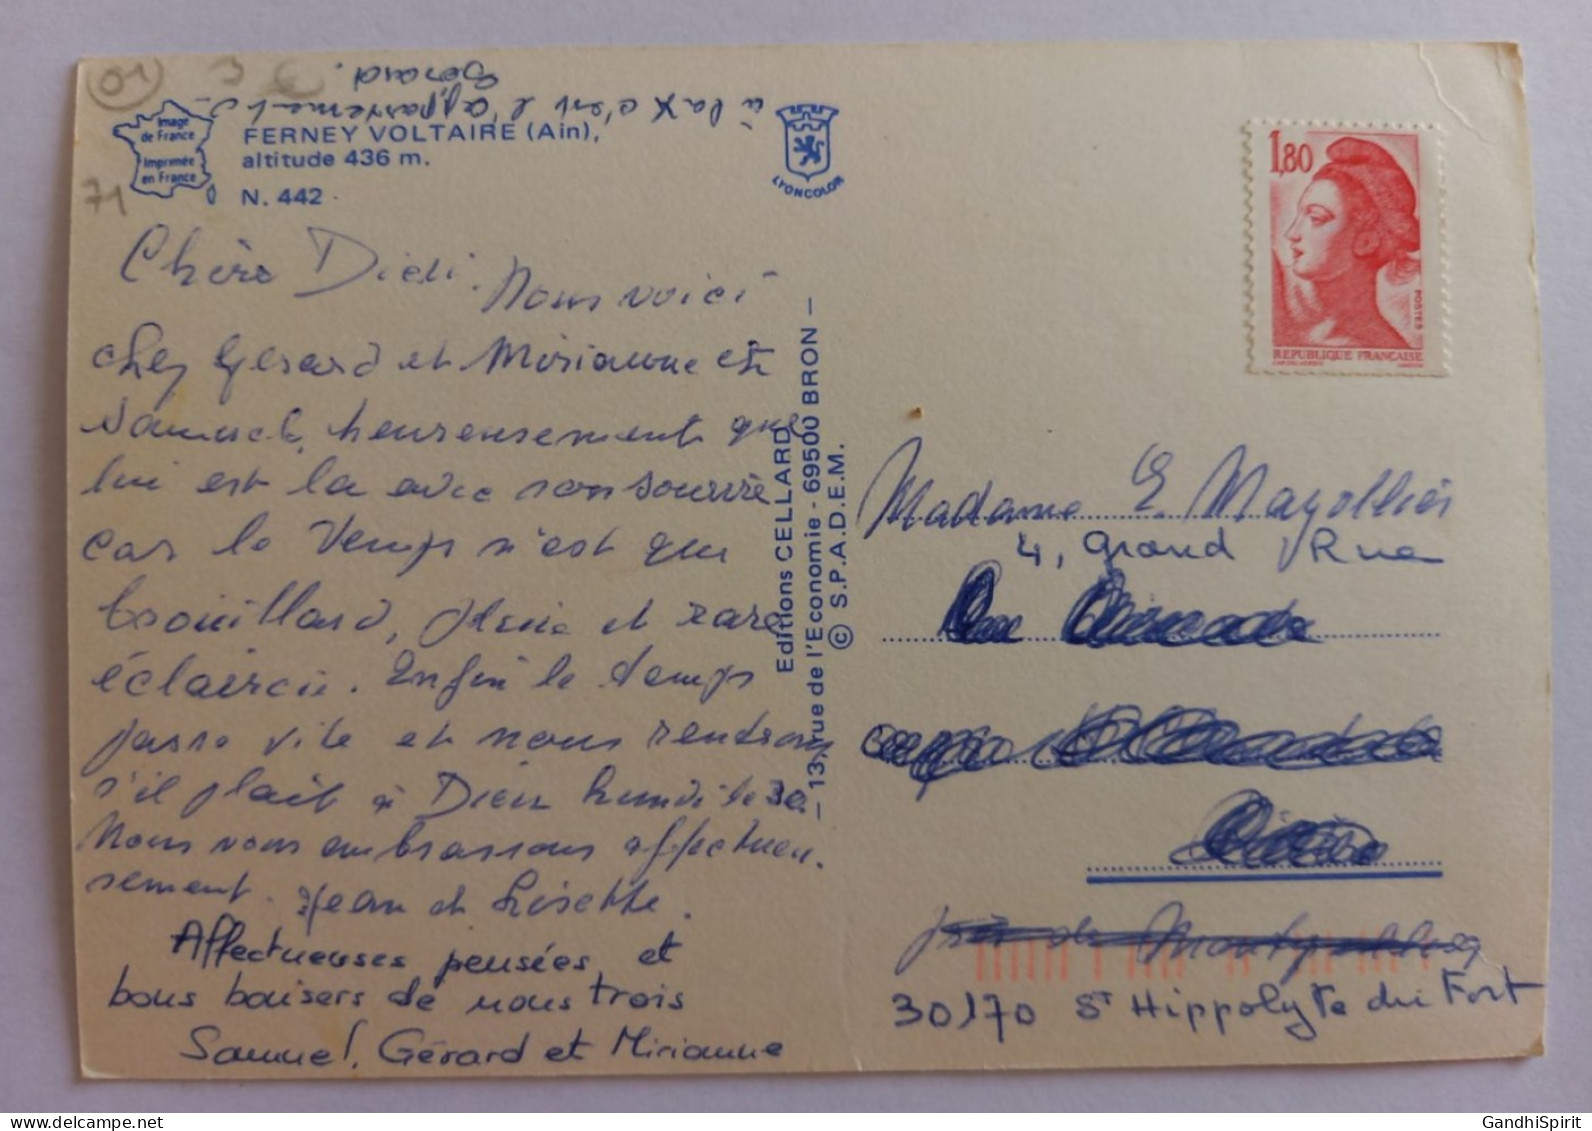 01
à la X c'est l'appartement à
Gérard.
Image
de France
Imprimée
en France
FERNEY VOLTAIRE (Ain),
altitude 436 m.
N. 442
71
LYONCOLOR
Chère Didi. Nous voici
chez Gérard et Mirianne et
Samuel, heureusement que
lui est la avec son sourire
car le temps n'est que
brouillard, pluie et rare
éclaircie. Enfin le temps
passe vite et nous rentrons
s'il plait à Dieu lundi le 30.
Nous vous embrassons affectueu-
sement. Jean et Lisette.
Affectueuses pensées et
bons baisers de nous trois
Samuel, Gérard et Mirianne
Editions CELLARD
— 13, rue de l'Economie - 69500 BRON —
© S.P.A.D.E.M.
1,80
POSTES
REPUBLIQUE FRANÇAISE
Madame E. Mazollier
4, Grand Rue
près de
30170 St Hippolyte du Fort
delcampe.net
GandhiSpirit